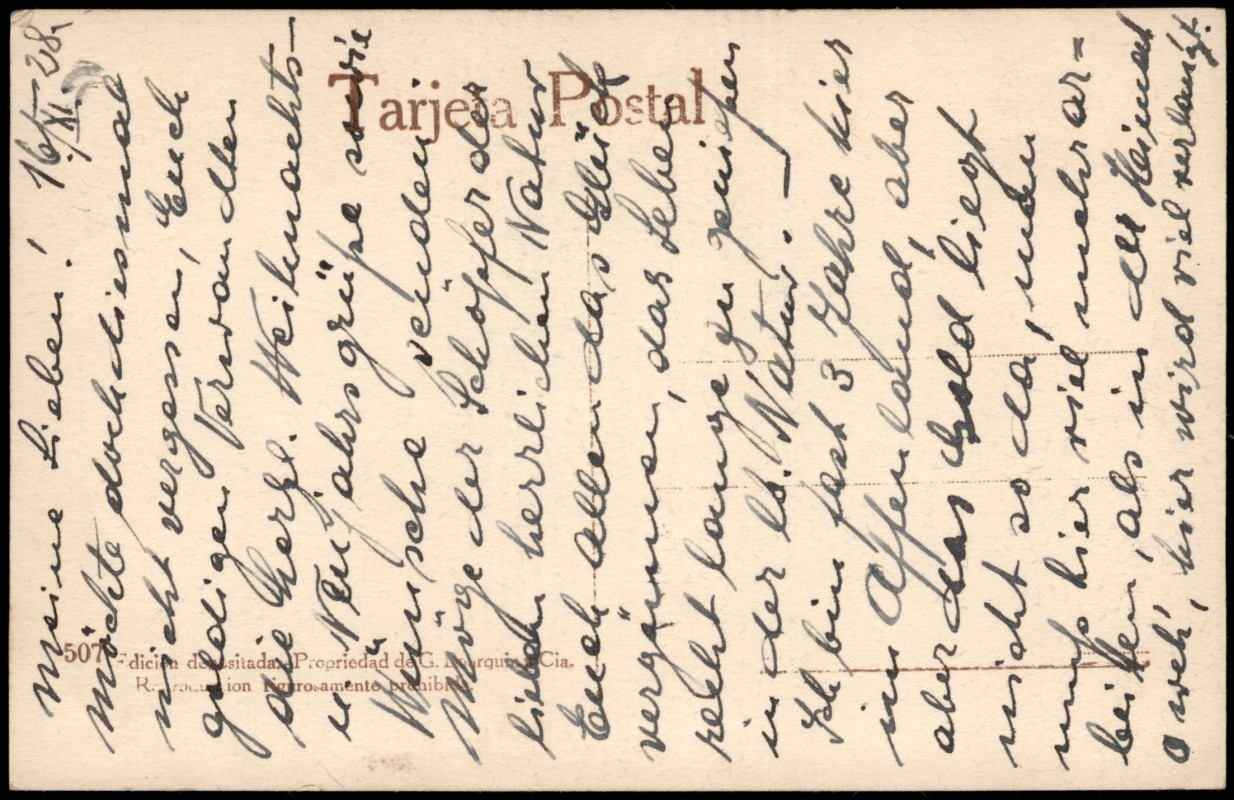 Tarjeta Postal
507 Edición depositada. Propriedad de G. Bourquin y Cia.
Reproduccion rigurosamente prohibida.
16/XI. 28.
Meine Lieben!
Möchte doch diesmal
nicht vergessen, Euch
guldigen Verwandten
die Herzl. Weihnachts-
u. Neujahrsgrüße sowie
Wünsche senden
Möge der Schöpfer der
lieben herrlichen Natur
Euch allen das Glück
vergönnen, das Leben
recht lange zu genießen
in der lb. Natur. —
Ich bin fast 3 Jahre hier
im Affenland, aber
aber das Geld liegt
nicht so da, man
muß hier viel mehr ar=
beiten, als in der Heimat
o weh, hier wird viel verlangt.